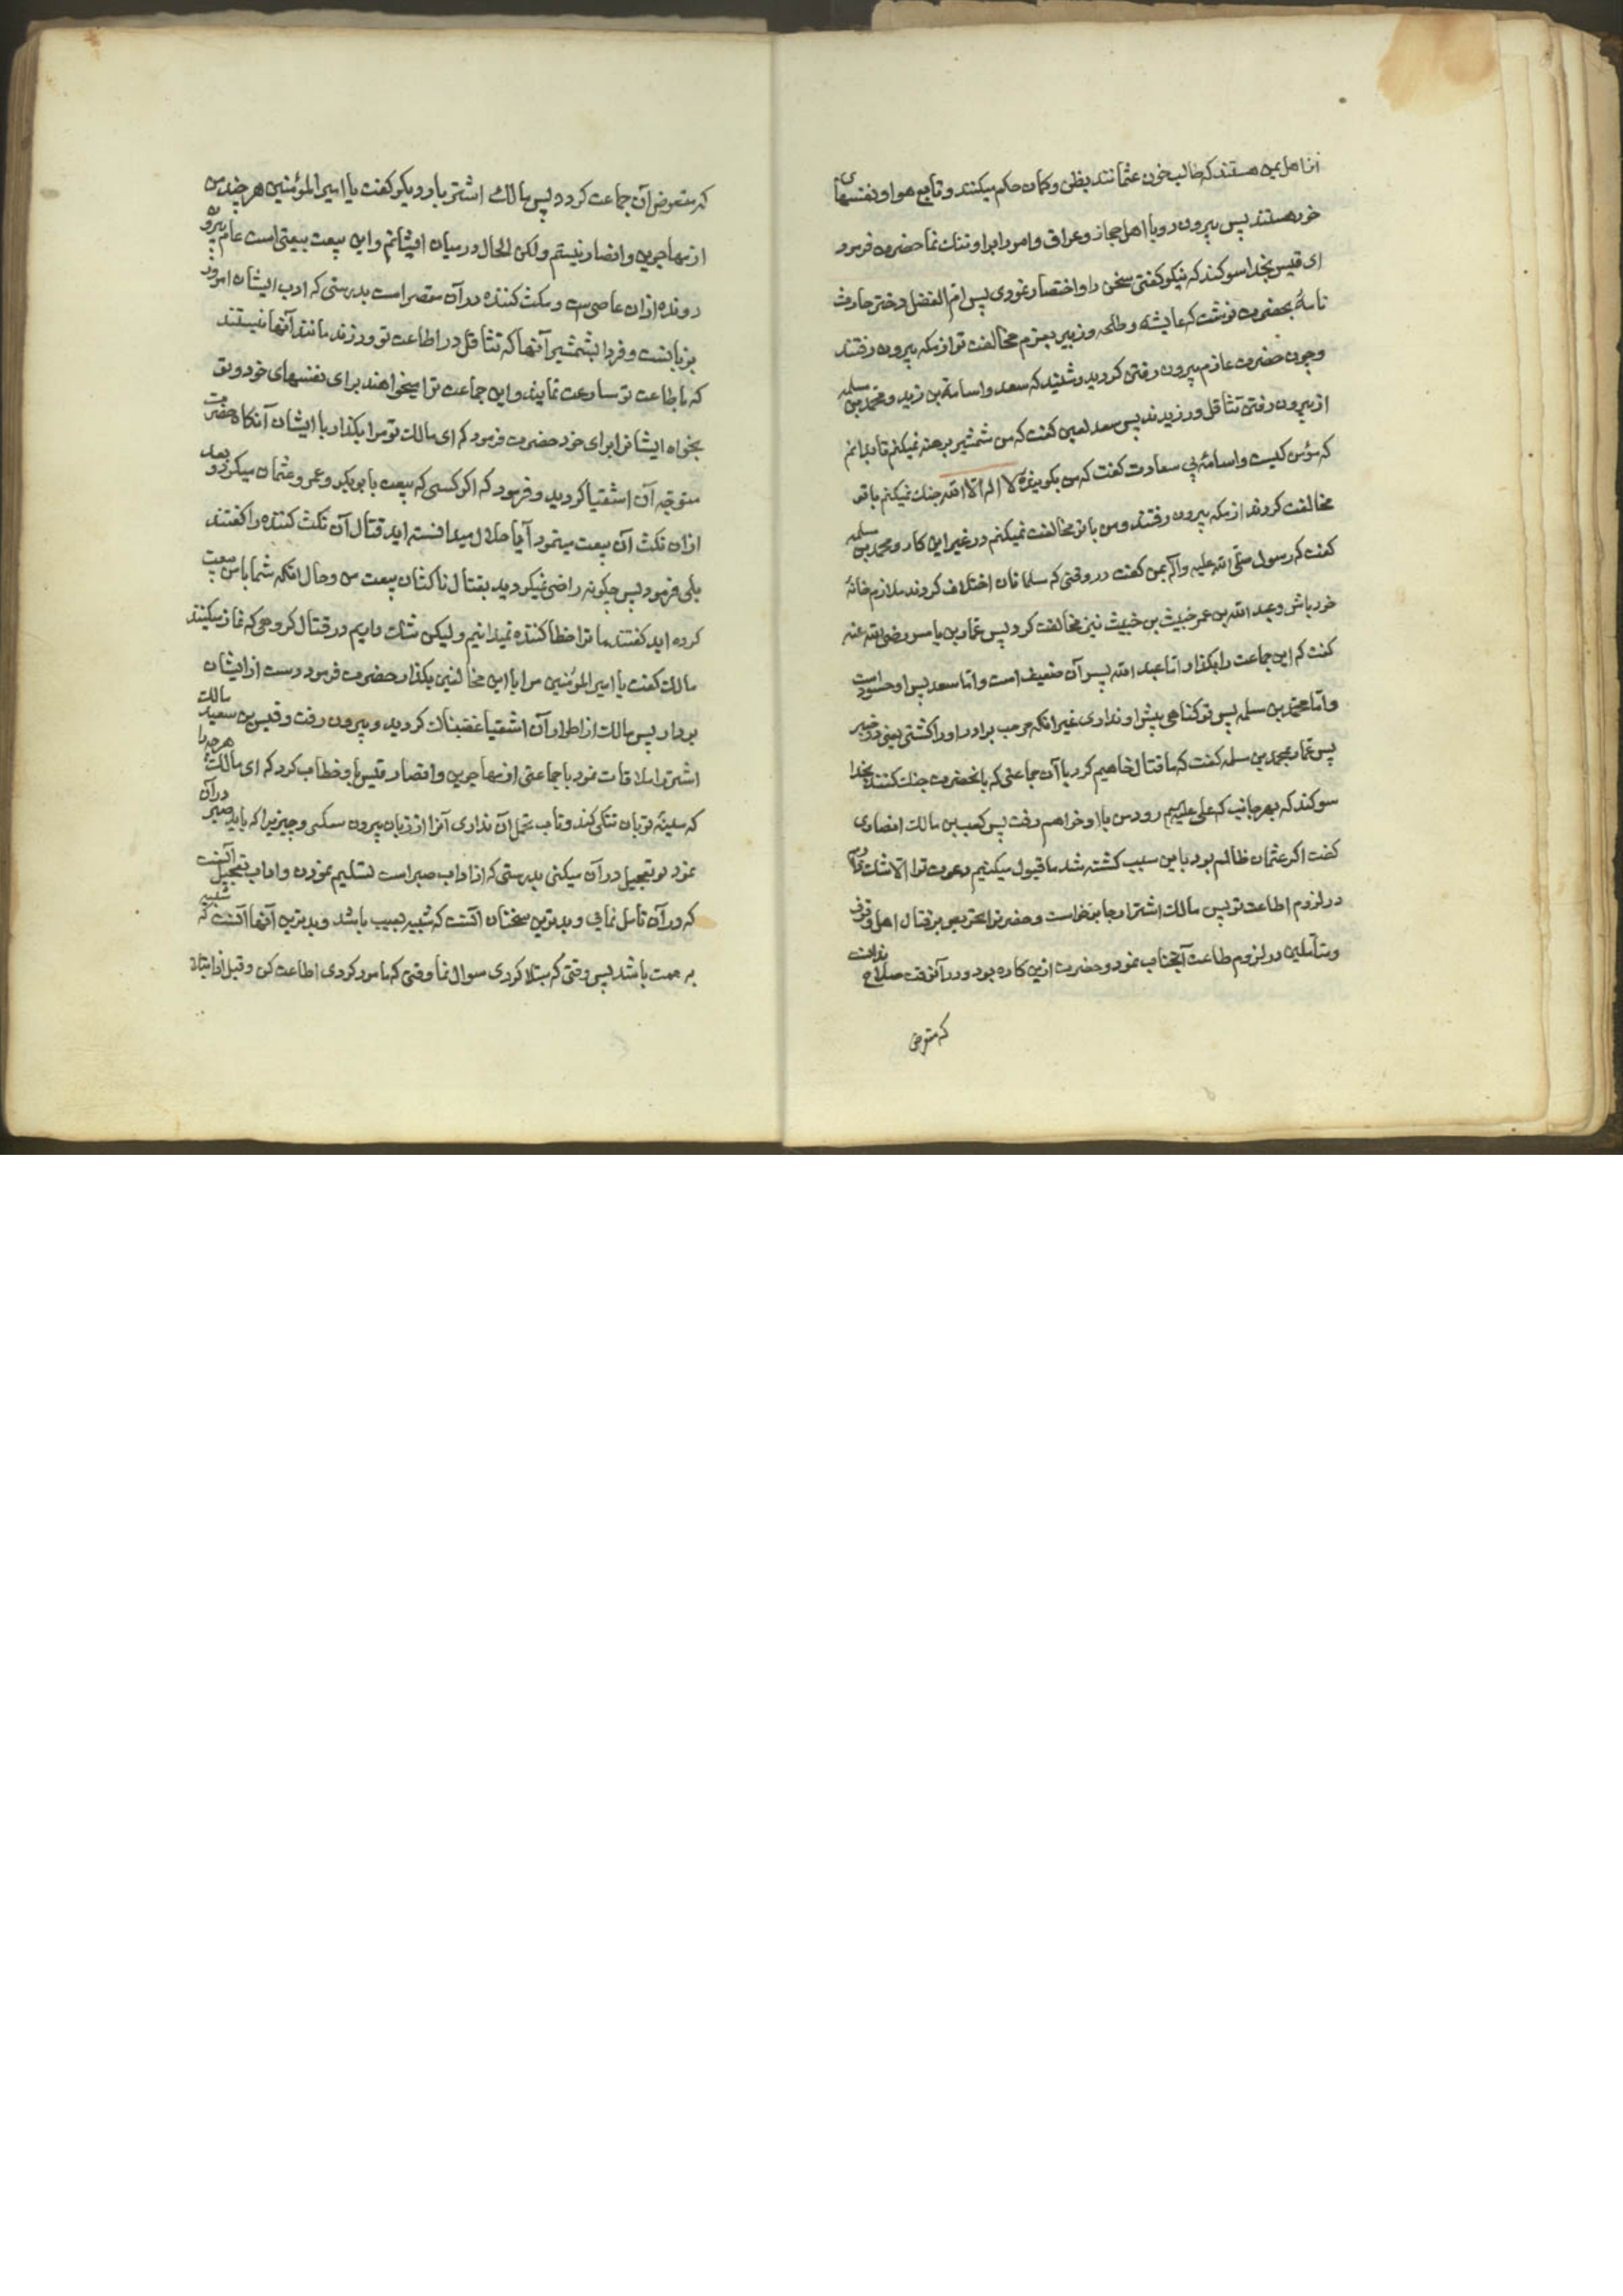 از اهل یمن هستند که طالب خون عثمانند بظن و کمان حکم میکنند و تابع هوا و نفسهای
خود هستند پس بیرون رو با اهل حجاز و عراق و امور ابرا و تنک نما حضرت فرمود
ای قیس بخدا سوکند که نیکو کفتی سخن را و اختصار نمودی پس ام الفضل دختر حارث
نامهٔ بحضرت نوشت که عایشه و طلحه و زبیر بعزم مخالفت تو از مکه بیرون رفتند
و چون حضرت عازم بیرون رفتن کردید و شنید که سعد و اسامة بن زید و محمد بن مسلمه
از بیرون رفتن تثاقل ورزیدند پس سعد لعین کفت که من شمشیر برهنه نمیکنم تا بدانم
که مؤمن کیست و اسامهٔ بی سعادت کفت که من بکویندهٔ لا اله الا الله جنک نمیکنم با تو
مخالفت کردند از مکه بیرون رفتند و من با تو مخالفت نمیکنم در غیر این کار و محمد بن مسلمه
کفت که رسول صلی الله علیه وآله بمن کفت در وقتی که مسلمانان اختلاف کردند ملازم خانهٔ
خود باش و عبد الله بن عمر خبیث بن خبیث نیز مخالفت کرد پس عمار بن یاسر رضی الله عنه
کفت که این جماعت را بکذار اما عبد الله پس آن ضعیف است و اما سعد پس او حسود است
و اما محمد بن مسلمه پس تو کناهی پیش او نداری غیر انکه مرحب برادر او را کشتی یعنی در خیبر
پس عمار بمحمد بن مسلمه کفت که ما قتال خاهیم کرد با آن جماعتی که بانحضرت جنک کنند بخدا
سوکند که بهر جانب که علی علیه‌م رود من با او خواهم رفت پس کعب بن مالک انصاری
کفت اکر عثمان ظالم بود باین سبب کشته شد ما قبول میکنیم دعوت تو را الا شک
در لزوم اطاعت تو پس مالک اشتر از جا برخواست و حضرت را تحریص بر قتال اهل
و متأملین در لزوم طاعت آنجناب نمود و حضرت ازین کاره بود و در آنوقت صلاح ندانست
که متعرض
که متعرض آن جماعت کردد پس مالک اشتر بار دیکر کفت یا امیر المؤمنین هر چند من
از مهاجرین و انصار نیستم ولکن الحال در میان ایشانم و این بیعت بیعتی است عام بیرون
رونده ازان عاصی است و مکث کننده در آن مقصر است بدرستی که ادب ایشان امروز
بزبانست و فردا بشمشیر آنها که تثاقل در اطاعت تو ورزند مانند آنها نیستند
که باطاعت تو مسارعت نمایند و این جماعت ترا میخواهند برای نفسهای خود و تو
بخواه ایشانرا برای خود حضرت فرمود که ای مالک تو مرا بکذار با ایشان آنکاه حضرت
متوجه آن اشقیا کردید و فرمود که اکر کسی که بیعت بابو بکر و عمر و عثمان میکرد و بعد
ازان نکث آن بیعت مینمود آیا حلال میدانسته اید قتال آن نکث کننده را کفتند
بلی فرمود پس چکونه راضی نمیکردید بقتال ناکثان بیعت من و حال انکه شما با من بیعت
کرده اید کفتند ما ترا خطا کننده نمیدانیم ولیکن شک داریم در قتال کروهی که نماز میکنند
مالک کفت یا امیر المؤمنین مرا با این مخالفین بکذار حضرت فرمود دست از ایشان
بردار پس مالک از اطوار آن اشقیا غضبناک کردید و بیرون رفت و قیس بن سعید مالک
اشتر را ملاقات نمود با جماعتی از مهاجرین و انصار قیس باو خطاب کرد که ای مالک هر چه را
که سینهٔ تو بان تنکی کند و تاب تحمل آن نداری آنرا از زبان بیرون میکنی و چیزیرا که باید صبر در آن
نمود تو تعجیل در آن میکنی بدرستی که از اداب صبر است تسلیم نمودن و اداب تعجیل آنست
که در آن تامل نمایی و بدترین سخنان آنست که شبیه بعیب باشد و بدترین آنها آنست که شبیه
به تهمت باشد پس وقتی که مبتلا کردی سوال نما و وقتی که مامور کردی اطاعت کن و قبل از ابتلا